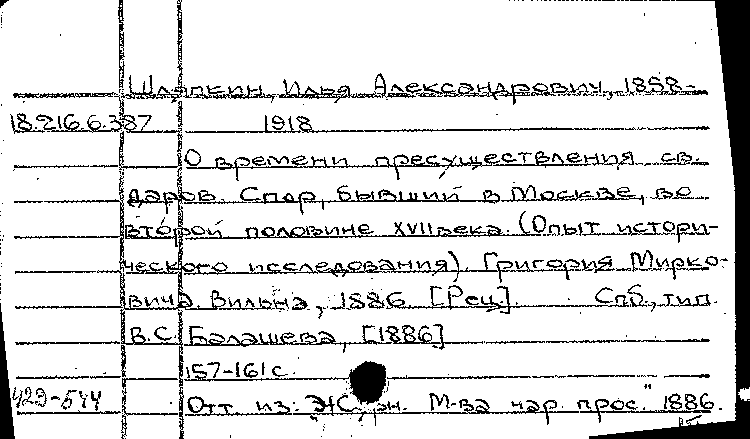 Шляпкин, Илья Александрович, 1858-
18.216.6.387 1918
О времени пресуществления св.
даров. Спор, бывший в Москве, во
второй половине XVII века. (Опыт истори-
ческого исследования). Григория Мирко-
вича. Вильна, 1886. [Рец.]. Спб., тип.
В.С. Балашева, [1886]
157-161 с.
429-544 Отт. из: "Ж. М-ва нар. прос." 1886.